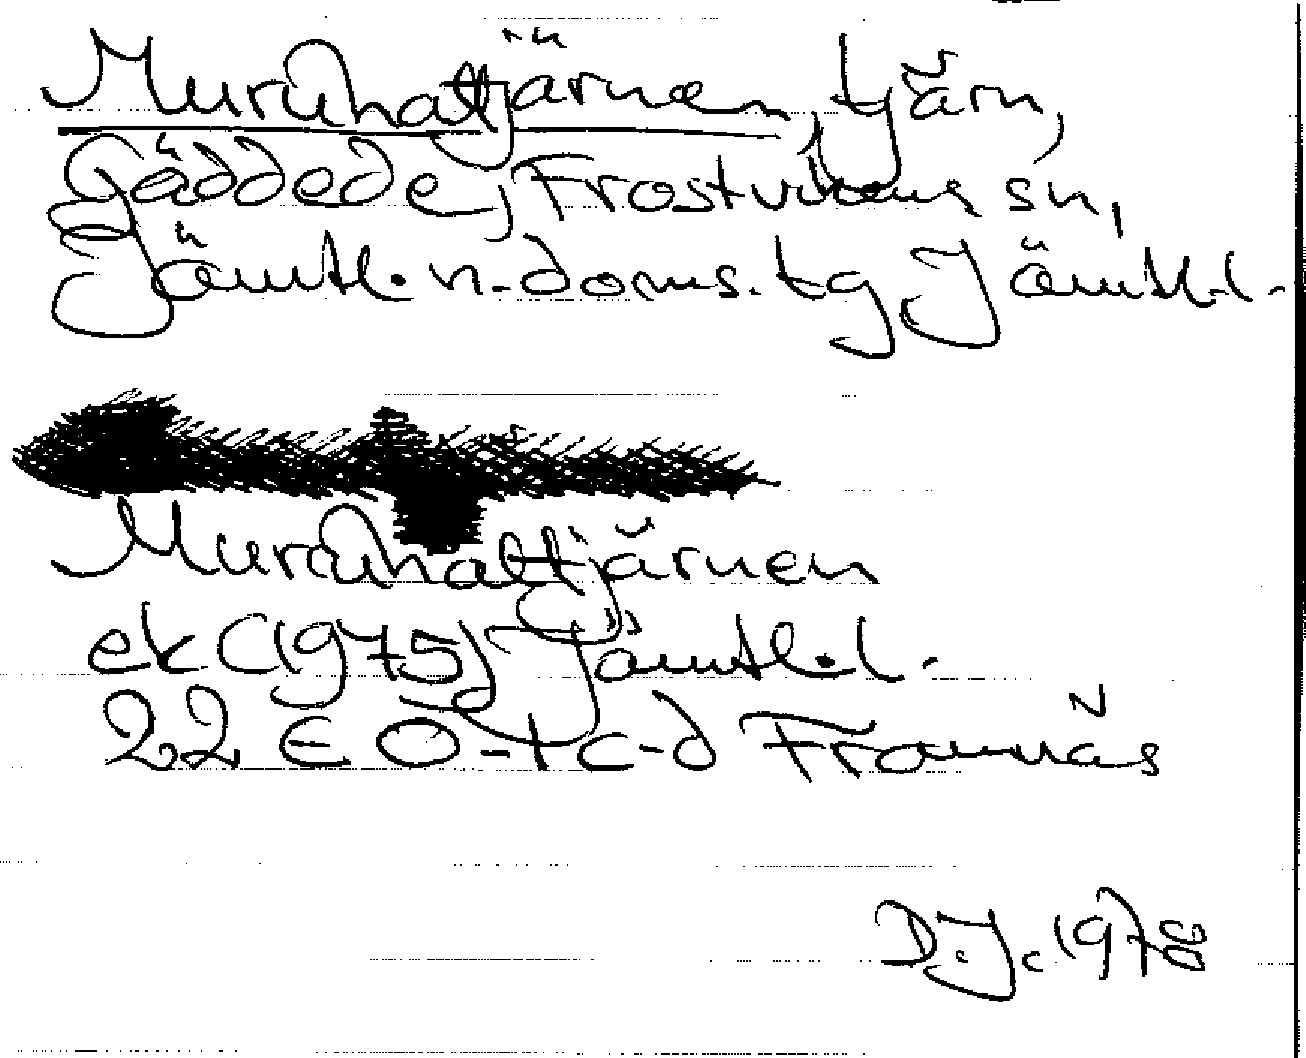 Muruhattjärnen, tjärn,
Gäddede, Frostvikens sn,
Jämtl. n. doms. tg, Jämtl. l.
Muruhattjärnen
ek (1975) Jämtl. l.
22 E 0-1 c-d Frannäs
D.J. 1978